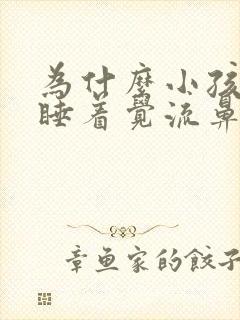 為什麼小孩
睡著覺流鼻
章魚家的餃子